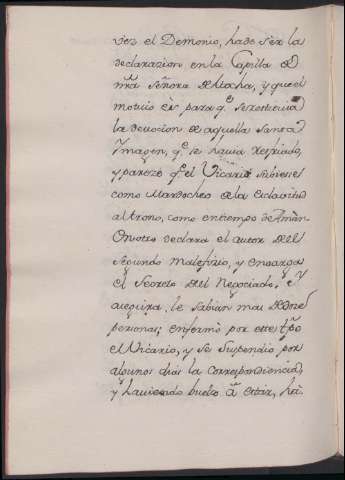 vez el Demonio, ha de sèr la
declarazion en la Capilla de
nr̃a Señora de Atocha, y que el
motiuo es para q.e se restituia
la deuocion de aquella Santa
Ymagen, q.e se hauia resfriado,
y parezè q.e el Vicario subiese
como Mardocheo de la Esclavitud
al trono, como en tiempo de Amàn
En otro declara el autor del
segundo maleficio, y encarga
el Secreto del Negociado, q.e
le sabian mas de doze
personas; enfermò por este tp̃o
el Vicario, y se suspendiò por
algunos dias la correspondencia,
y hauiendo buelto â estar,